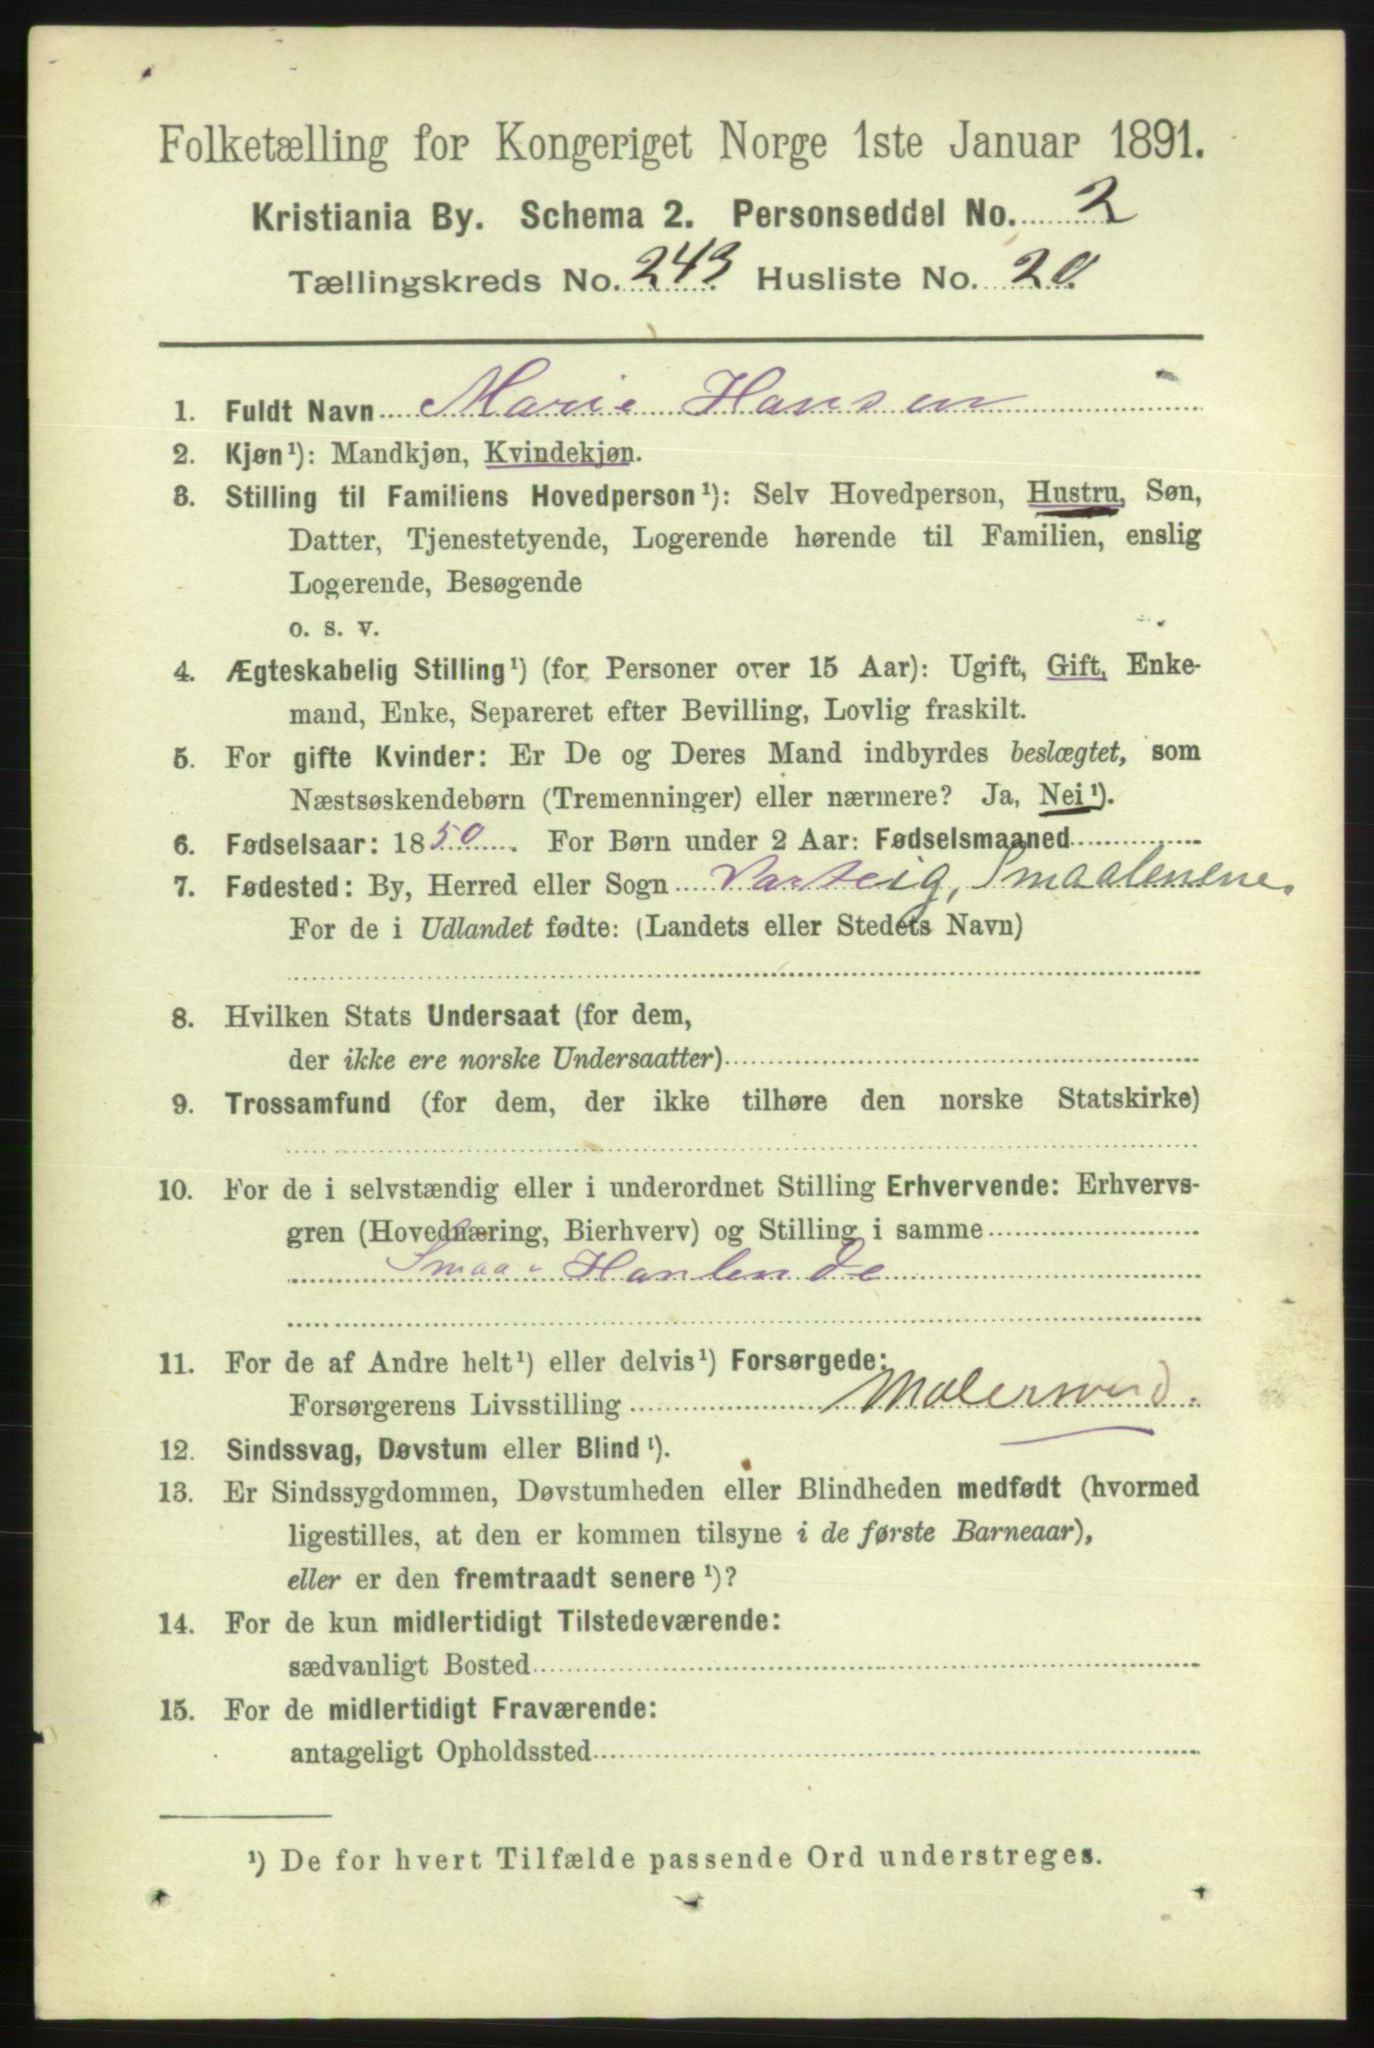 Folketælling for Kongeriget Norge 1ste Januar 1891.
Kristiania By. Schema 2. Personseddel No. 2
Tællingskreds No. 243 Husliste No. 20
1. Fuldt Navn Marie Hansen
2. Kjøn¹): Mandkjøn, Kvindekjøn.
3. Stilling til Familiens Hovedperson¹): Selv Hovedperson, Hustru, Søn,
Datter, Tjenestetyende, Logerende hørende til Familien, enslig
Logerende, Besøgende
o. s. v.
4. Ægteskabelig Stilling¹) (for Personer over 15 Aar): Ugift, Gift, Enke-
mand, Enke, Separeret efter Bevilling, Lovlig fraskilt.
5. For gifte Kvinder: Er De og Deres Mand indbyrdes beslægtet, som
Næstsøskendebørn (Tremenninger) eller nærmere? Ja, Nei¹).
6. Fødselsaar: 1850. For Børn under 2 Aar: Fødselsmaaned
7. Fødested: By, Herred eller Sogn Varteig, Smaalenene.
For de i Udlandet fødte: (Landets eller Stedets Navn)
8. Hvilken Stats Undersaat (for dem,
der ikke ere norske Undersaatter)
9. Trossamfund (for dem, der ikke tilhøre den norske Statskirke)
10. For de i selvstændig eller i underordnet Stilling Erhvervende: Erhvervs-
gren (Hovednæring, Bierhverv) og Stilling i samme
Smaa Hanlende
11. For de af Andre helt¹) eller delvis¹) Forsørgede:
Forsørgerens Livsstilling Malersvend.
12. Sindssvag, Døvstum eller Blind¹).
13. Er Sindssygdommen, Døvstumheden eller Blindheden medfødt (hvormed
ligestilles, at den er kommen tilsyne i de første Barneaar),
eller er den fremtraadt senere¹)?
14. For de kun midlertidigt Tilstedeværende:
sædvanligt Bosted
15. For de midlertidigt Fraværende:
antageligt Opholdssted
¹) De for hvert Tilfælde passende Ord understreges.